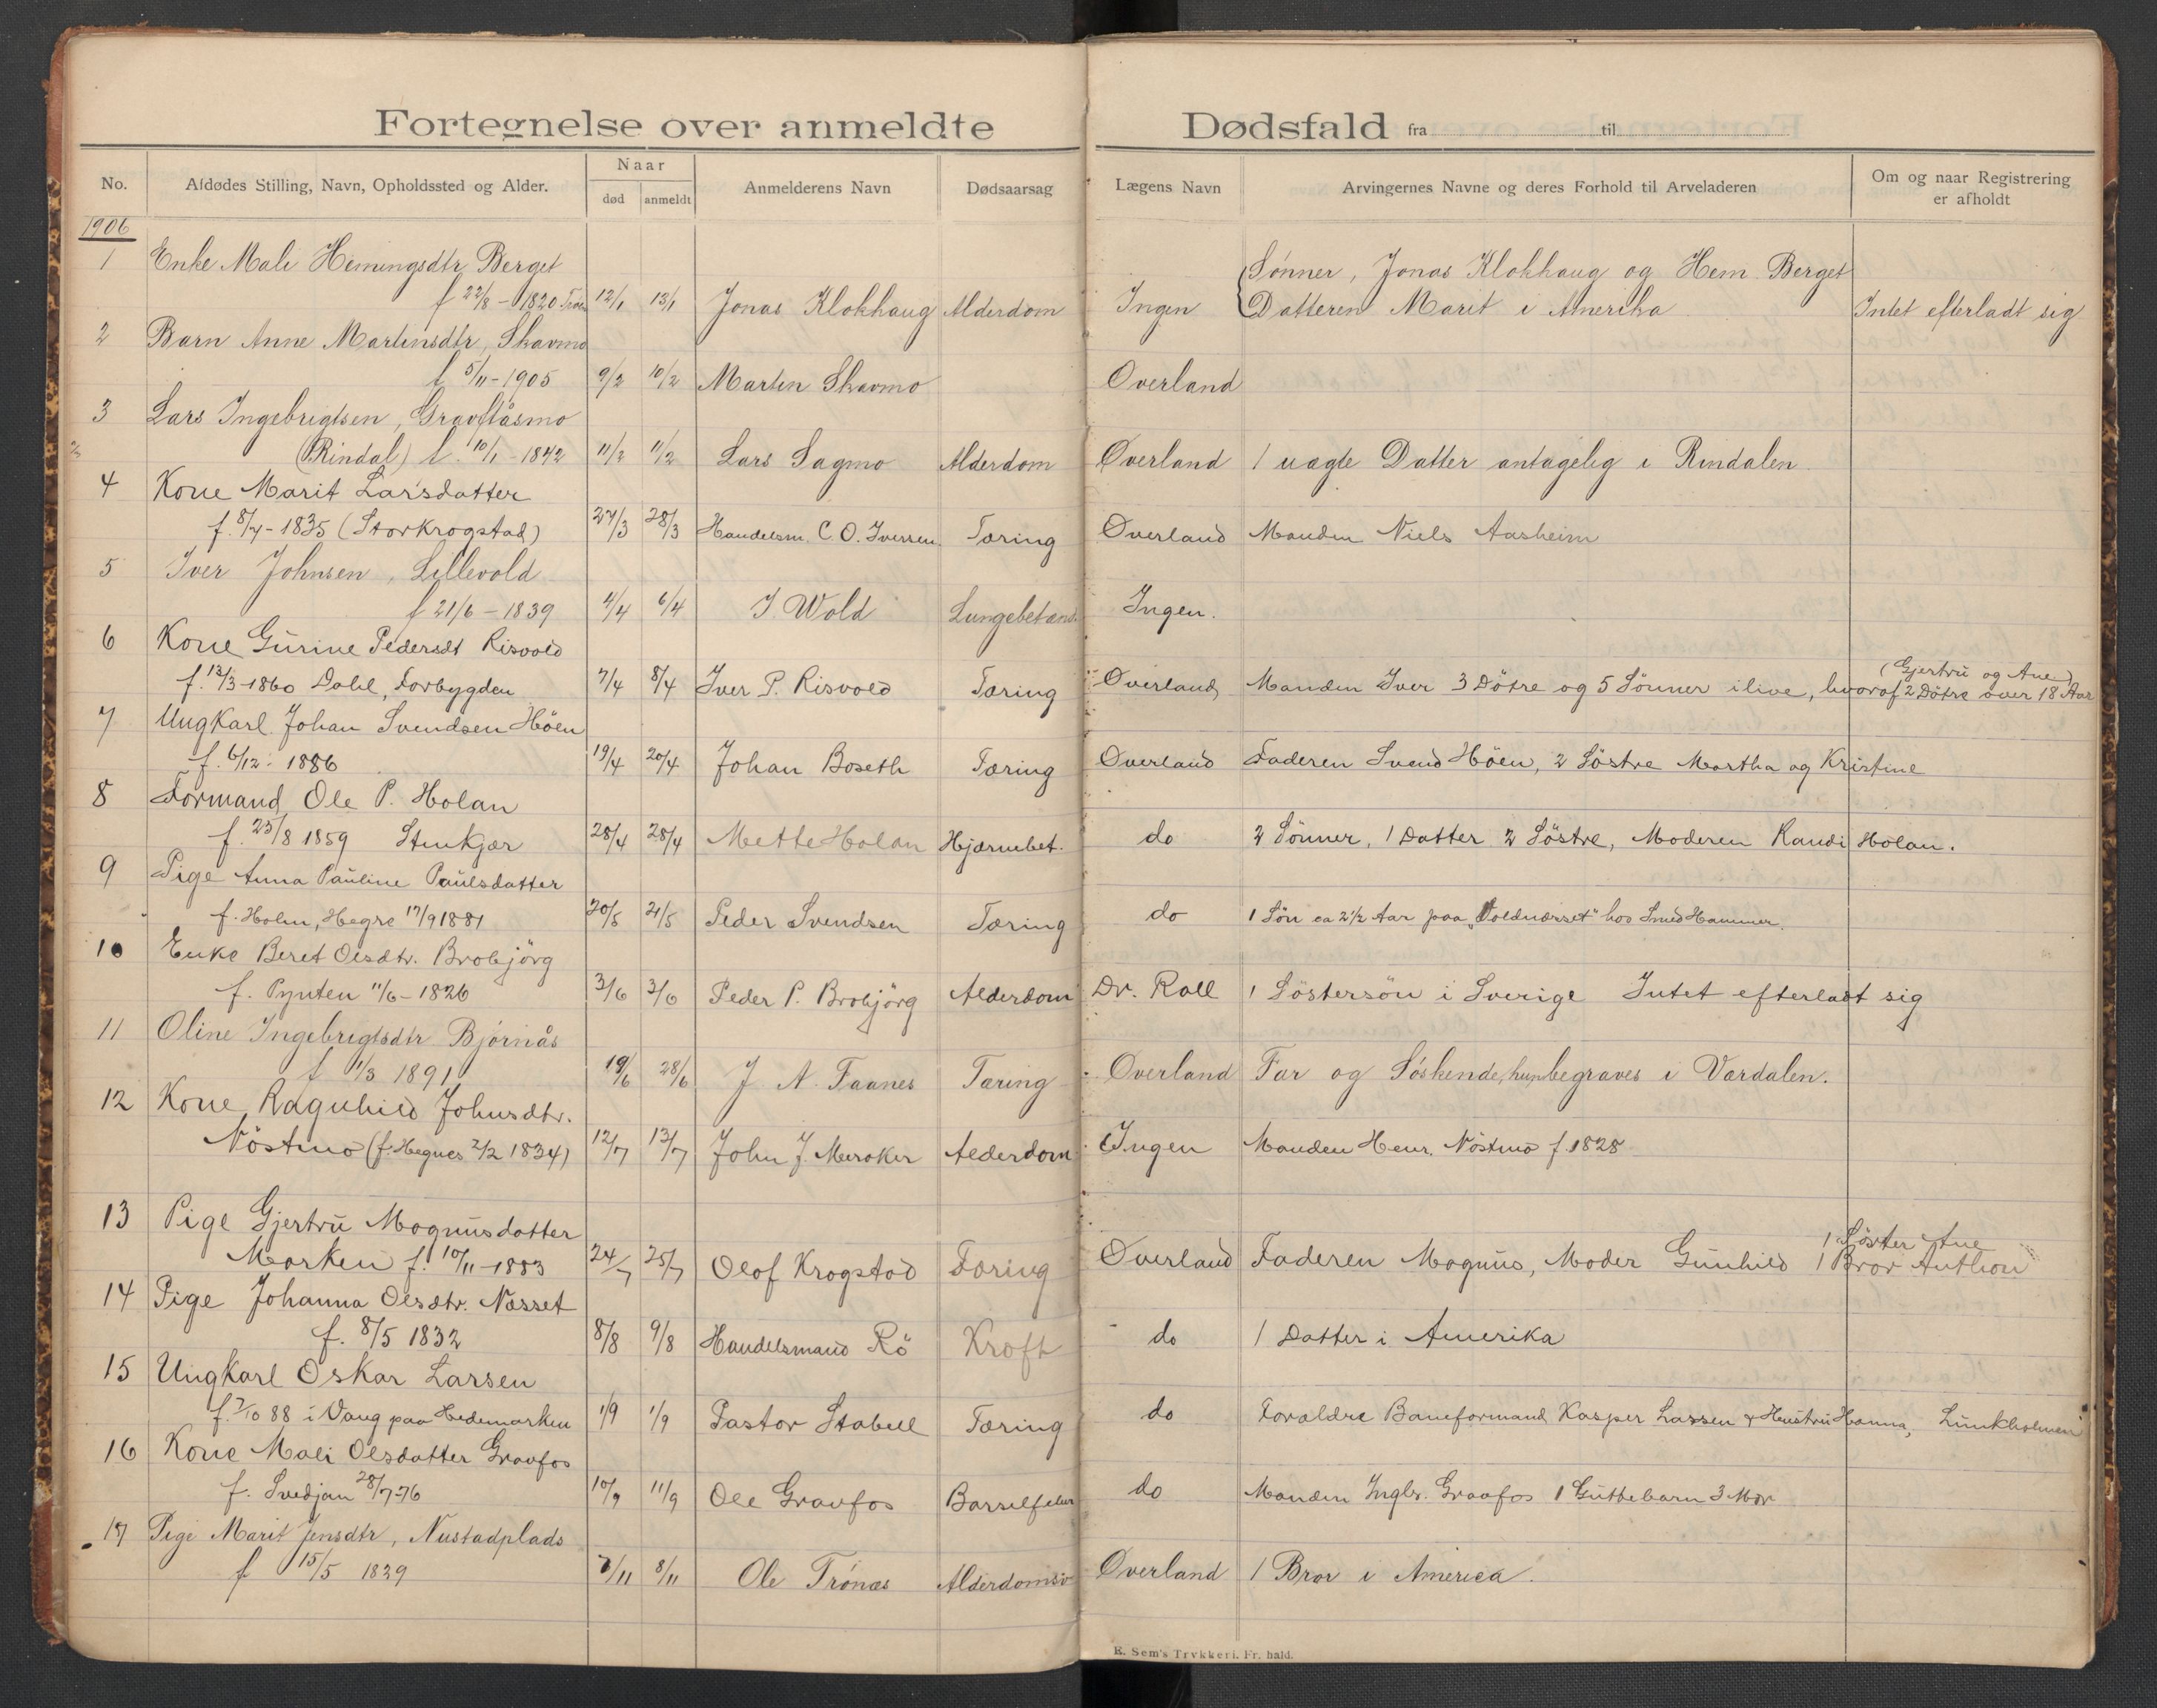 Fortegnelse over anmeldte Dødsfald fra til
No. Afdødes Stilling, Navn, Opholdssted og Alder. Naar død anmeldt Anmelderens Navn Dødsaarsag Lægens Navn Arvingernes Navne og deres Forhold til Arveladeren Om og naar Registrering er afholdt
1906
1 Enke Mali Hemingsdtr Berget Sønner, Jonas Klokhaug og Hem. Berget
f 22/8 - 1820 12/1 13/1 Jonas Klokhaug Alderdom Ingen Datteren Marit i Amerika Intet efterladt sig
2 Barn Anne Martinsdtr, Skavmo
f 5/11 - 1905 9/2 10/2 Martin Skavmo Overland
3 Lars Ingebrigtsen, Gravflåsmo
(Rindal) f. 10/1 - 1842 11/2 11/2 Lars Sagmo Alderdom Øverland 1 uægte Datter antagelig i Rindalen
4 Kone Marit Larsdatter
f. 8/4 - 1835 (Storkrogstad) 27/3 28/3 Handelsm. C. O. Iversen Tæring Øverland Manden Niels Aasheim
5 Iver Johnsen, Lillevold
f 21/6 - 1839 4/4 6/4 J. Wold Lungebetænd. Ingen.
6 Kone Gurine Pedersdt Risvold
f. 13/3 - 1860 Dahl, Forbygden 7/4 8/4 Iver P. Risvold Tæring Øverland Manden Iver 3 Døtre og 5 Sønner ilive, hvoraf 2 Døtre over 18 Aar (Gjertru og Ane)
7 Ungkarl Johan Svendsen Höen
f. 6/12 - 1886 19/4 20/4 Johan Boseth Tæring Øverland Faderen Svend Höen, 2 Söstre Martha og Kristine
8 Formand Ole P. Holan
f. 25/8 1859 Stenkjær 28/4 28/4 Mette Holan Hjærnebet. do 2 Sönner, 1 Datter 2 Söstre, Moderen Randi Holan.
9 Pige Anna Pauline Paulsdatter
f. Holm, Hegre 17/9 1881 20/5 21/5 Peder Svendsen Tæring do 1 Sön ca 2 1/2 Aar paa "Voldnæsset" hos Smed Hammer.
10 Enke Beret Olsdtr. Brobjörg
f. Pynten 11/6 - 1826 3/6 3/6 Peder P. Brobjörg Alderdom Dr. Roll 1 Söstersön i Sverige Intet efterladt sig
11 Oline Ingebrigtsdtr Bjørnås
f 1/3 1891 19/6 28/6 J. A. Faanes Tæring Overland Far og Søskende, hun begraves i Værdalen.
12 Kone Ragnhild Johnsdtr.
Nöstmo (f. Hegnes 2/2 1834) 12/7 13/7 John J. Meroker Alderdom Ingen Manden Henr. Nöstmo f. 1828
13 Pige Gjertru Magnusdatter 1 Söster Ane
Marken f. 10/11 - 1883 24/7 25/7 Olof Krogstad Tæring Øverland Faderen Magnus, Moder Gunhild 1 Bror Anthon
14 Pige Johanna Olsdtr. Næsset
f. 8/5 1832 8/8 9/8 Handelsmand Rö Kræft do 1 Datter i Amerika
15 Ungkarl Oskar Larsen
f. 7/10 88 i Vang paa Hedemarken 1/9 1/9 Pastor Stabell Tæring do Foraldre Baneformand Kasper Larsen & Hustru Hanna, Lunkholmen
16 Kone Mali Olsdatter Graafos
f. Svedjan 28/7 - 76 10/9 11/9 Ole Graafos Barselfeber do Manden Ingbr. Graafos 1 Guttebarn 3 Mdr
17 Pige Marit Jensdtr, Nustadplads
f 15/5 1829 7/11 8/11 Ole Trønæs Alderdomsv Øverland 1 Bror i America.
E. Sem's Trykkeri, Fr. hald.